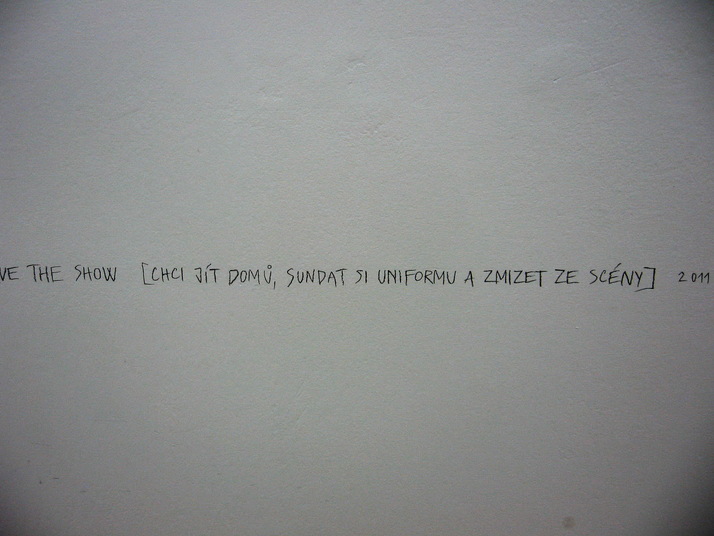 VE THE SHOW [CHCI JÍT DOMŮ, SUNDAT SI UNIFORMU A ZMIZET ZE SCÉNY] 2011